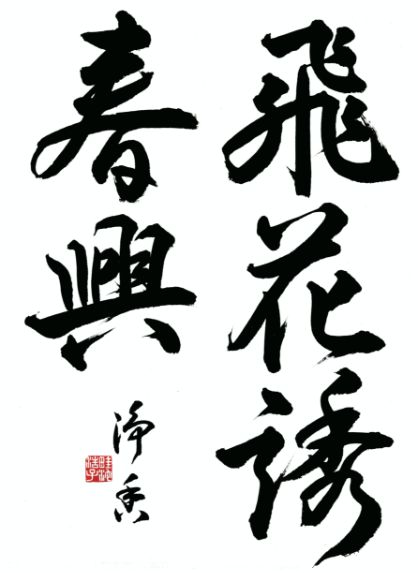 飛花誘
春興
浄香